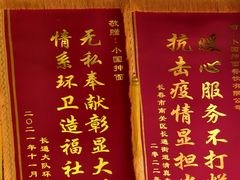 敬赠：小国抻面
无私奉献彰显大
情系环卫造福社
长通大队环
二〇二一年十一月
小国抻面
暖心服务不打烊
抗击疫情显担当
长春市南关区长通街道
二〇二二年